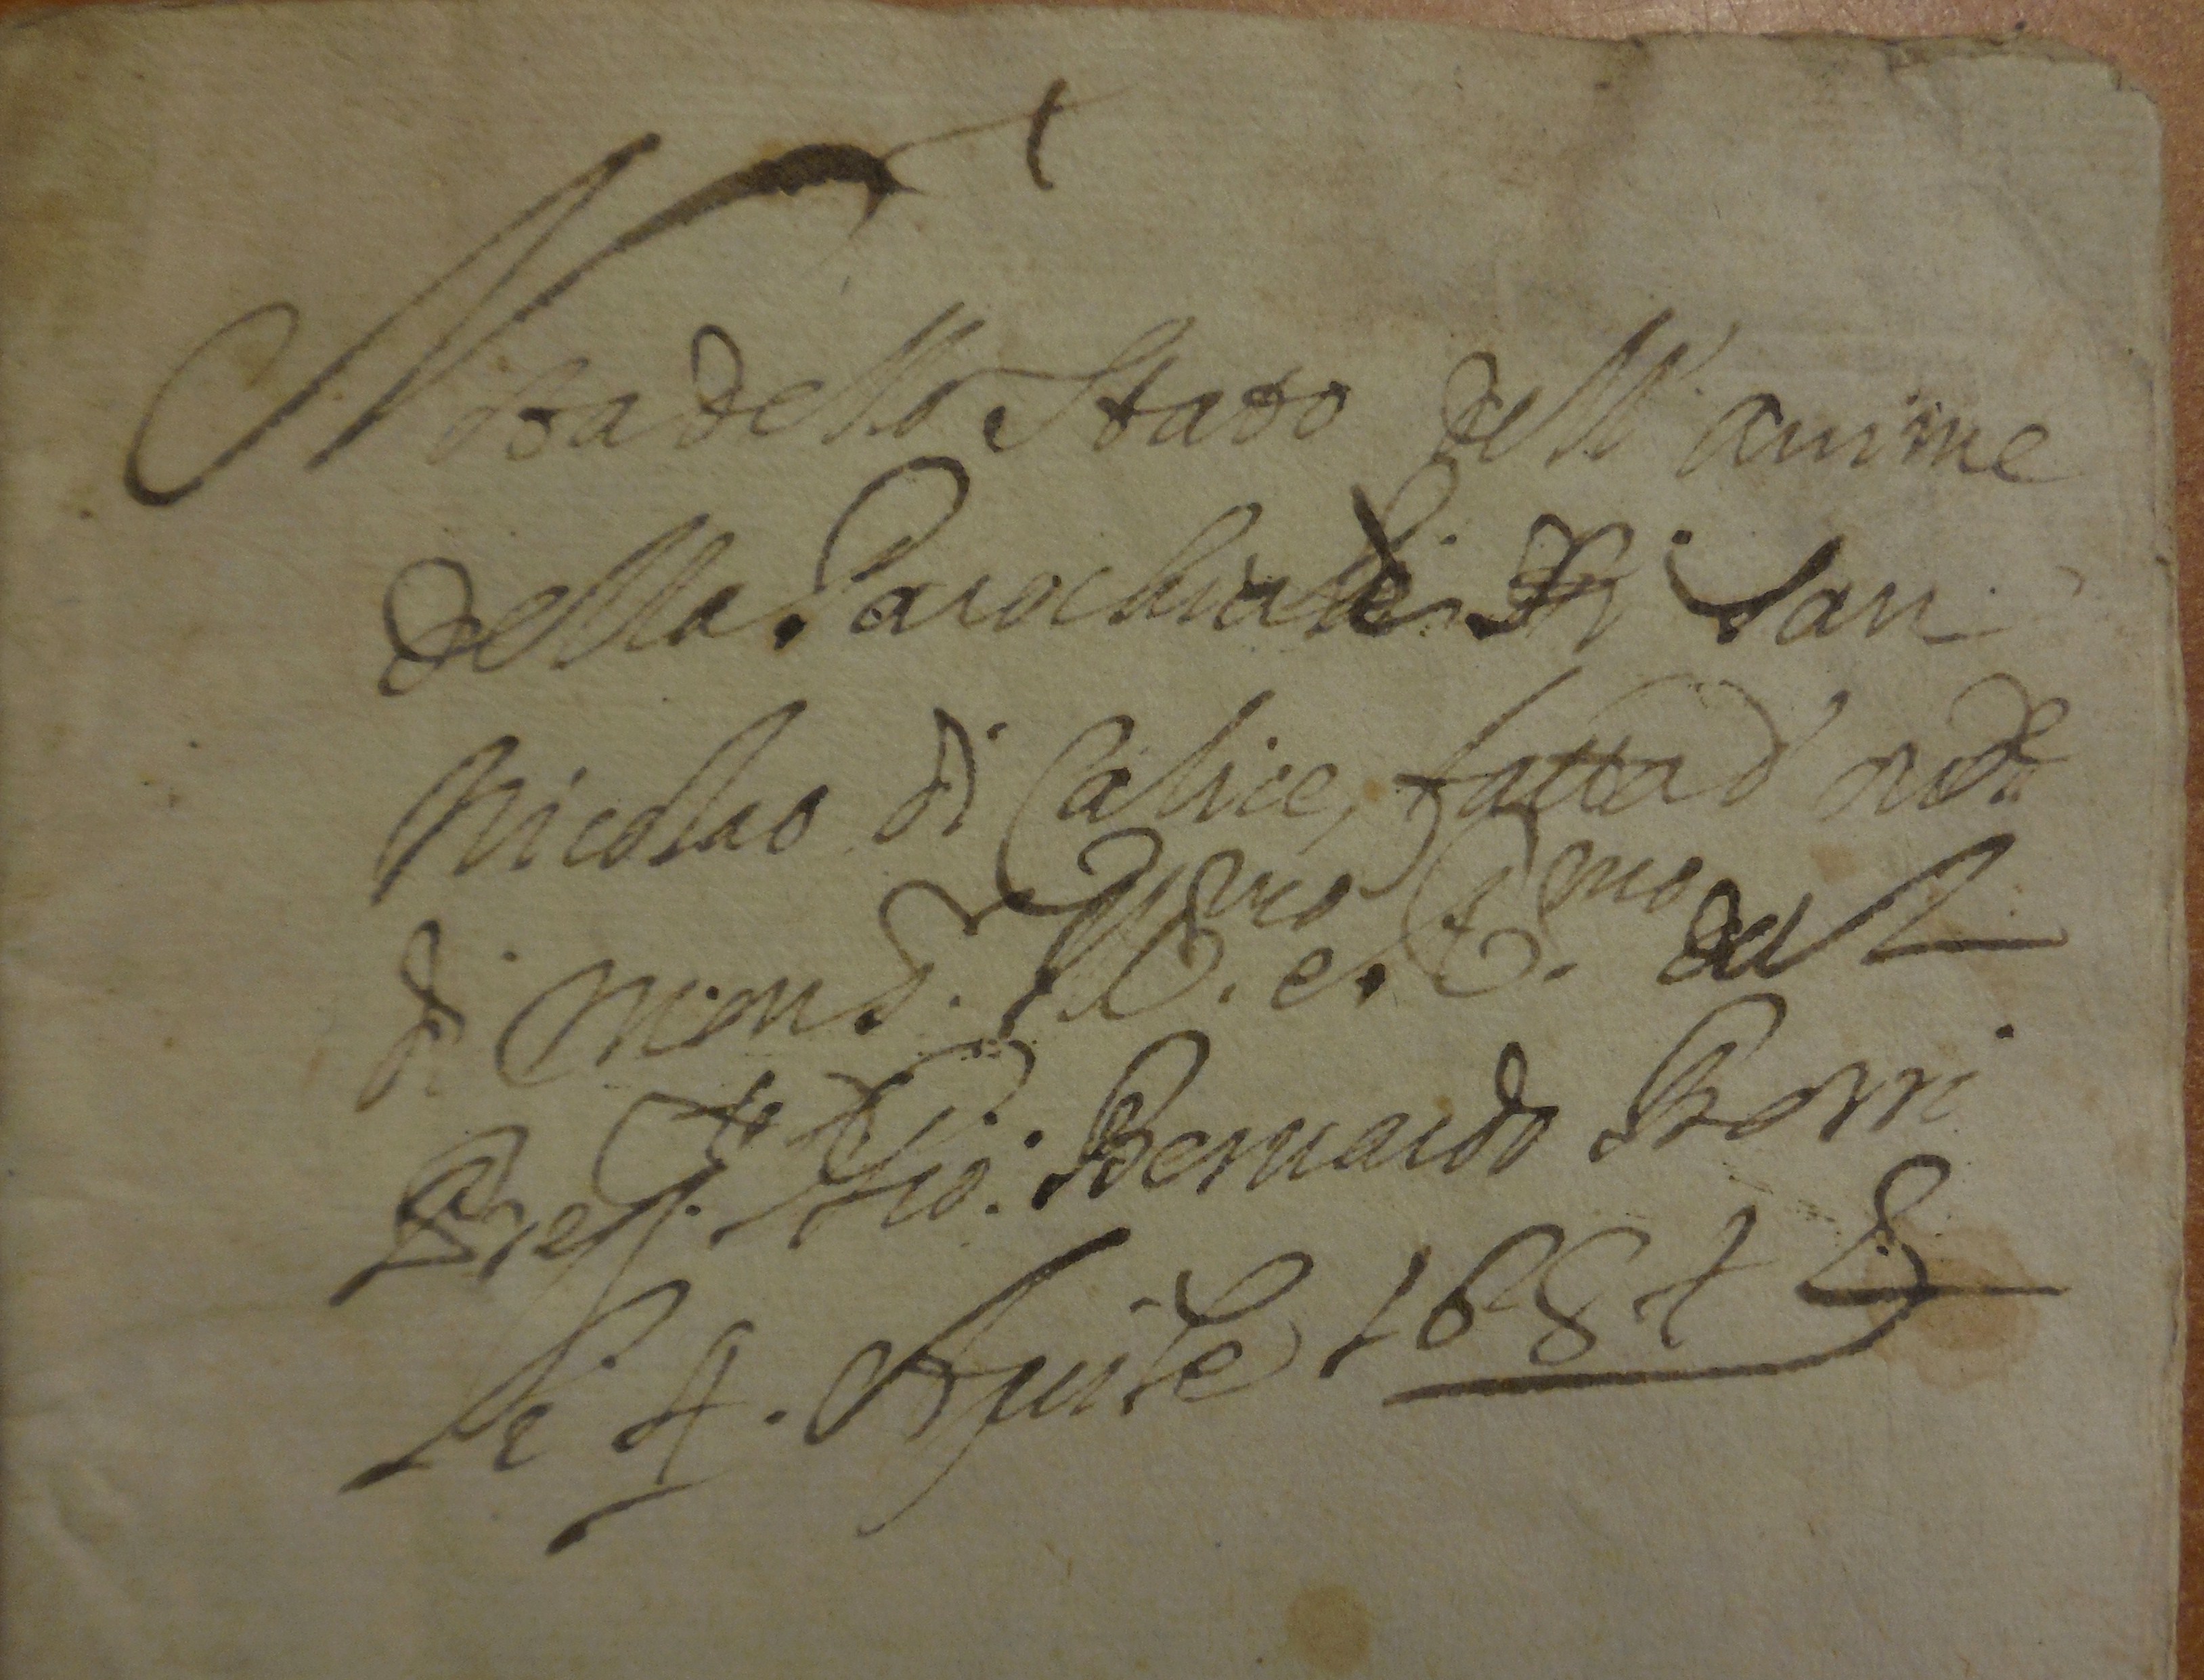 Nota dello Stato dell' anime
della Parochiale di San
Nicolao di Calice, fatta d' ord.e
di Mons.r Ill.mo e R.mo dal
Prete Gio: Bernardo Borri
li 4. Aprile 1687